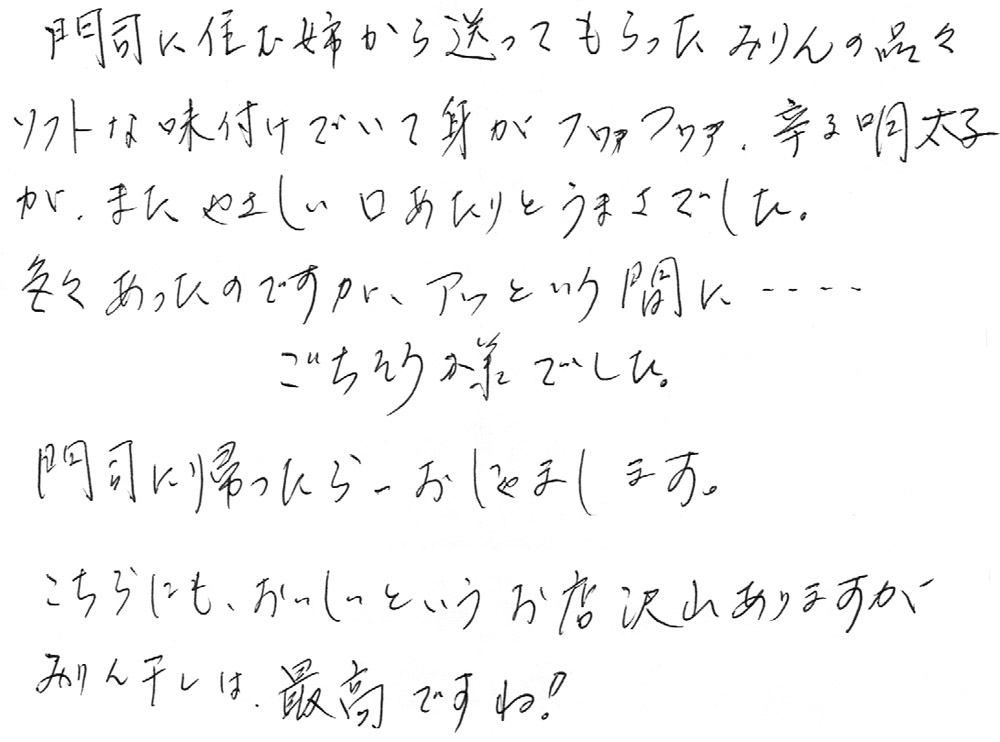 門司に住む姉から送ってもらったみりんの品々
ソフトな味付けでいて身がフワァフワァ、辛子明太子
が、またやさしい口あたりとうまさでした。
色々あったのですが、アッという間に‥‥
ごちそう様でした。
門司に帰ったら、おじゃまします。
こちらにも、おいしいというお店沢山ありますが
みりん干しは、最高ですね!